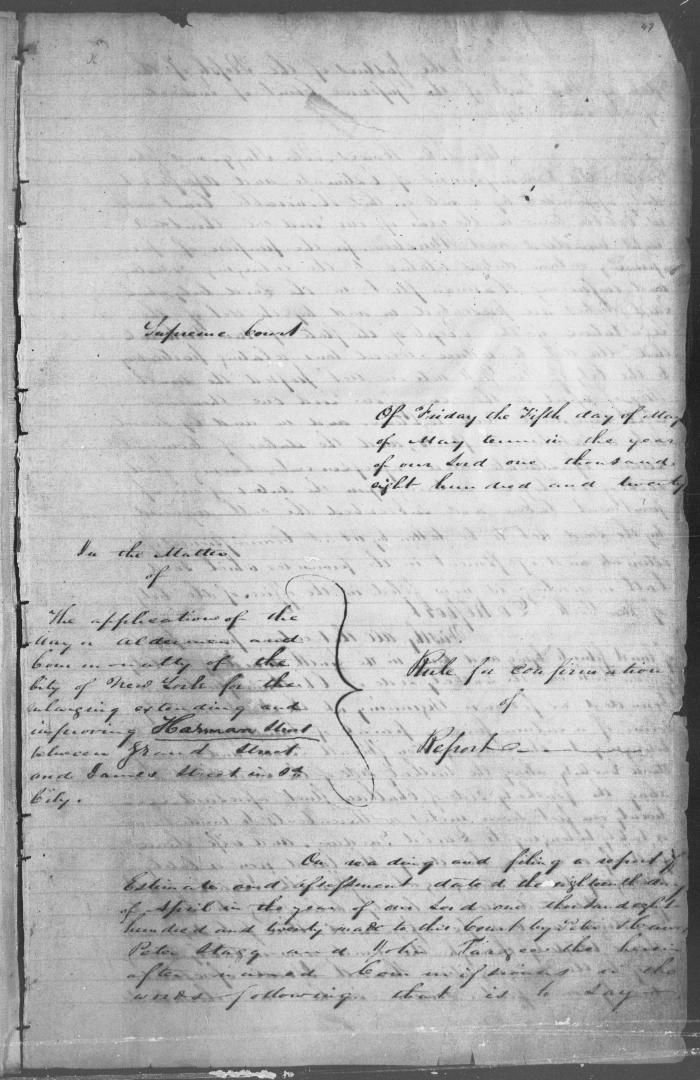 47
Supreme Court
Of Friday the Fifth day of May
of May term in the year
of our Lord one thousand
eight hundred and twenty
In the Matter
of
The application of the
Mayor Aldermen and
Commonalty of the
City of New York for the
enlarging extending and
improving Harman Street
between Grand Street
and James Street in sd
City.
Rule for confirmation
of
Report
On reading and filing a report of
Estimate and assessment dated the eighteenth day
of April in the year of our Lord one thousand eight
hundred and twenty made to this Court by Peter
Peter Stagg and John Targee the herein
after named Commissioners in the
words following that is to say